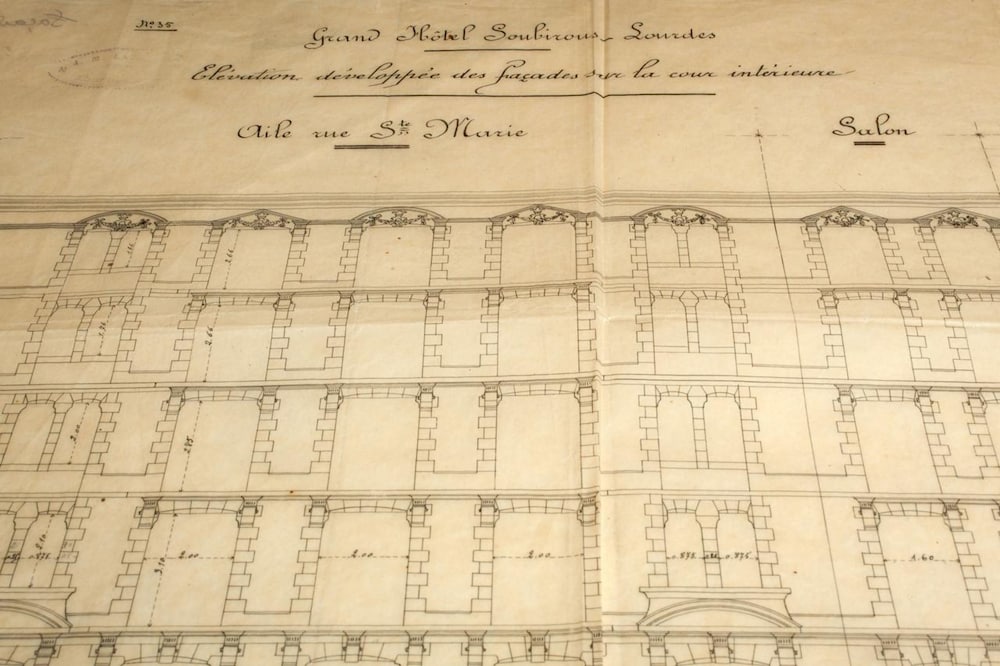 Nº 35
Grand Hôtel Soubirous_ Lourdes
Elévation développée des façades sur la cour intérieure
Aile rue Ste Marie
Salon
2.66
2.66
2.85
3.00
3.10
2.00
2.00
2.00
0.875
0.875
1.60